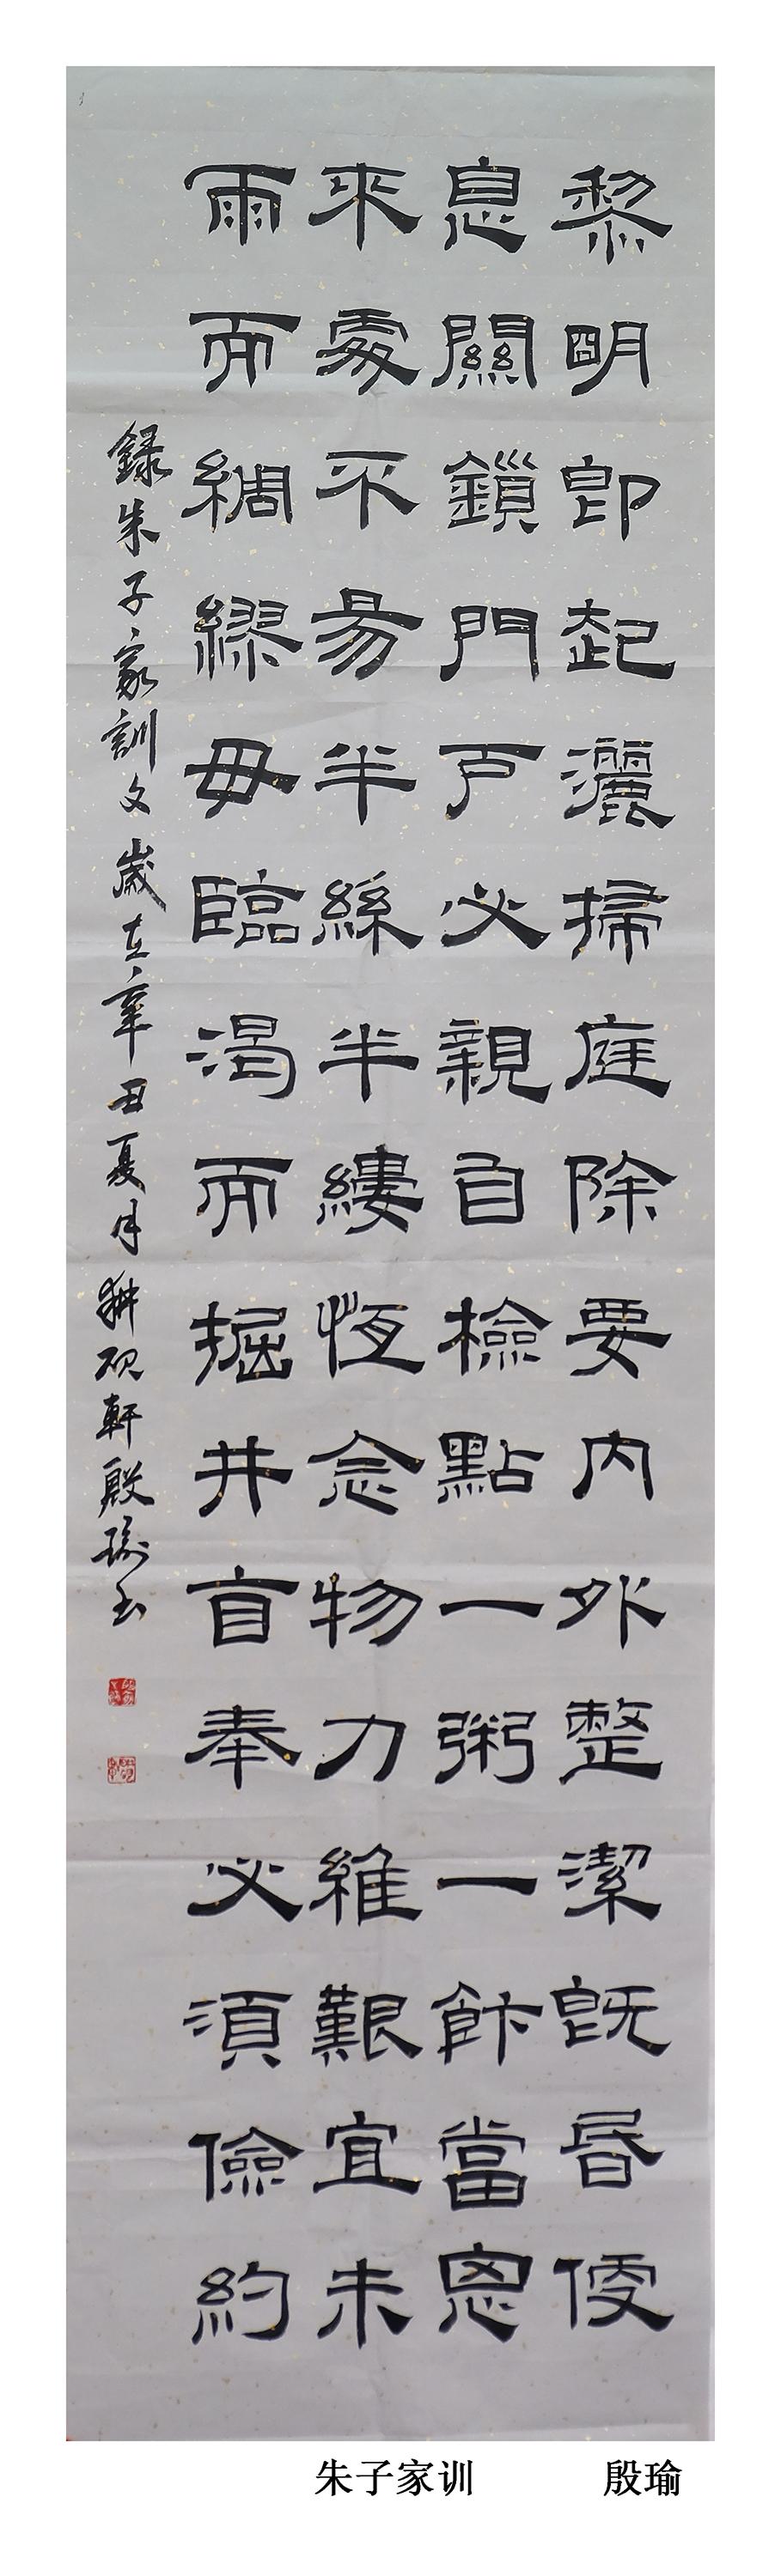 黎明即起灑掃庭除要内外整潔既昏便
息關鎖門户必親自檢點一粥一飰當思
來處不易半絲半縷恆念物力維艱宜未
雨而綢繆毋臨渴而掘井自奉必須儉約
録朱子家訓文歲在辛丑夏月耕硯軒殷瑜书
朱子家训 殷瑜